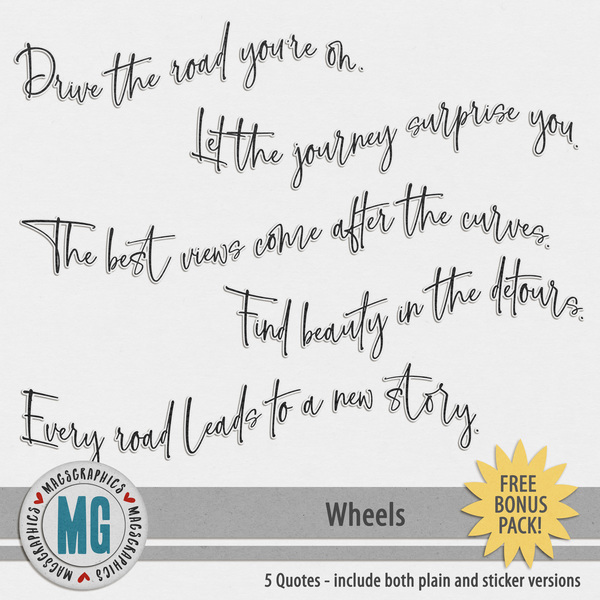 Drive the road you're on.
Let the journey surprise you.
The best views come after the curves.
Find beauty in the detours.
Every road leads to a new story.
MAGSGRAPHICS
MAGSGRAPHICS
MAGSGRAPHICS
MG
Wheels
FREE
BONUS
PACK!
5 Quotes - include both plain and sticker versions